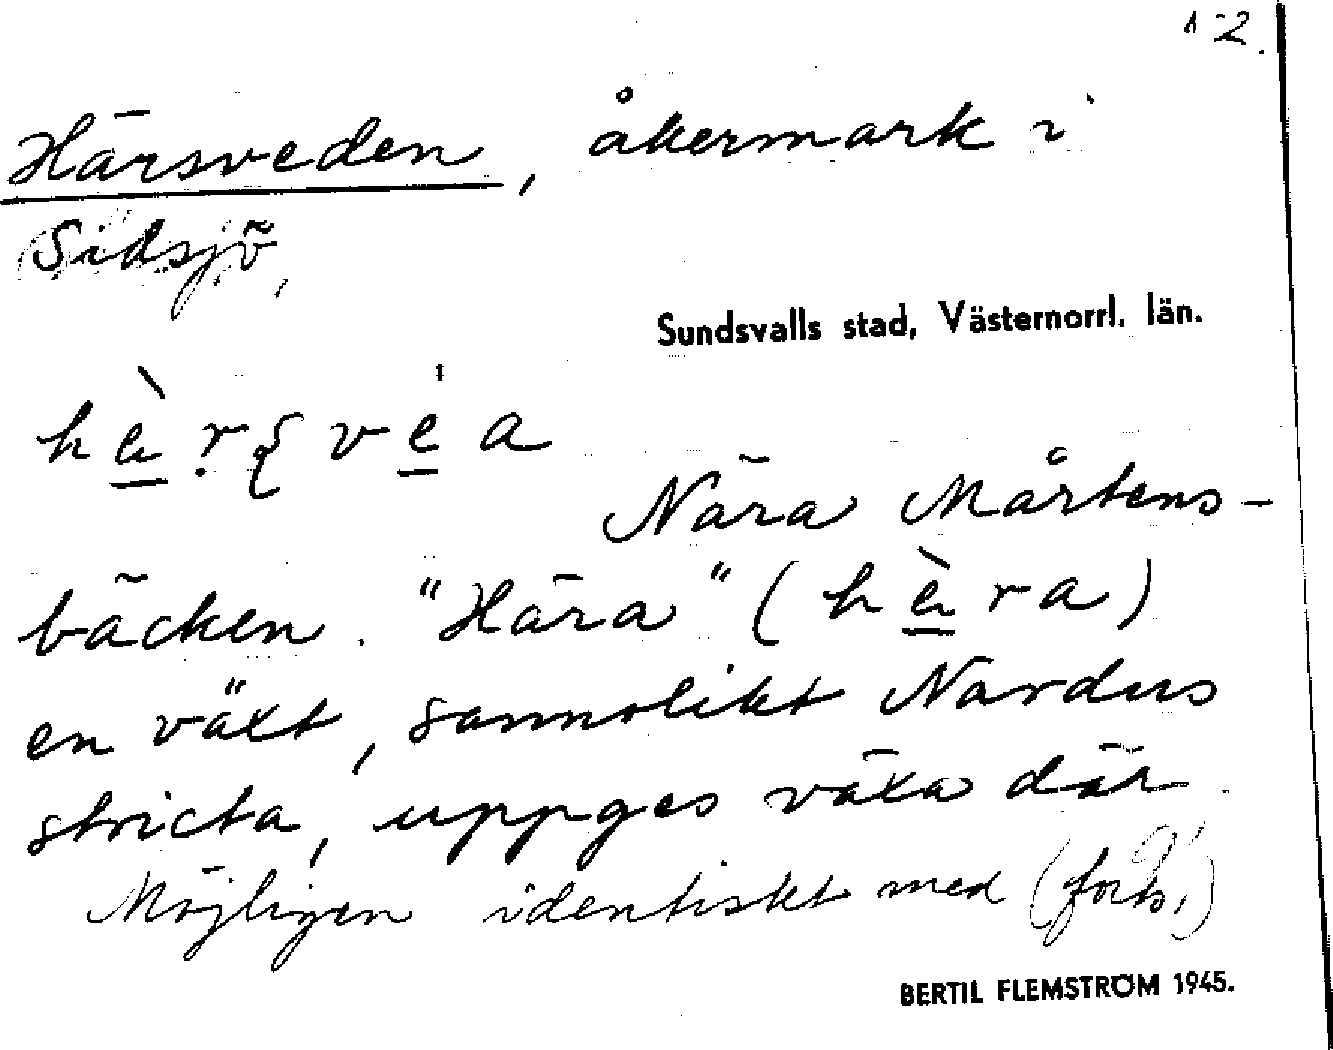 1-2.
Härsveden, åkermark i
Sidsjö,
Sundsvalls stad, Västernorrl. län.
Nära Mårtens-
bäcken. "Hära" (hèra)
en växt, sannolikt Nardus
stricta, uppges växa där.
Möjligen identiskt med (forts.)
BERTIL FLEMSTRÖM 1945.